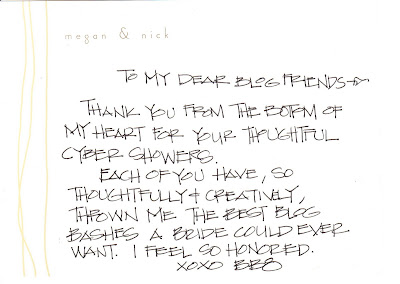 megan & nick
TO MY DEAR BLOG FRIENDS~
THANK YOU FROM THE BOTTOM OF
MY HEART FOR YOUR THOUGHTFUL
CYBER SHOWERS.
EACH OF YOU HAVE, SO
THOUGHTFULLY + CREATIVELY,
THROWN ME THE BEST BLOG
BASHES A BRIDE COULD EVER
WANT. I FEEL SO HONORED.
XOXO